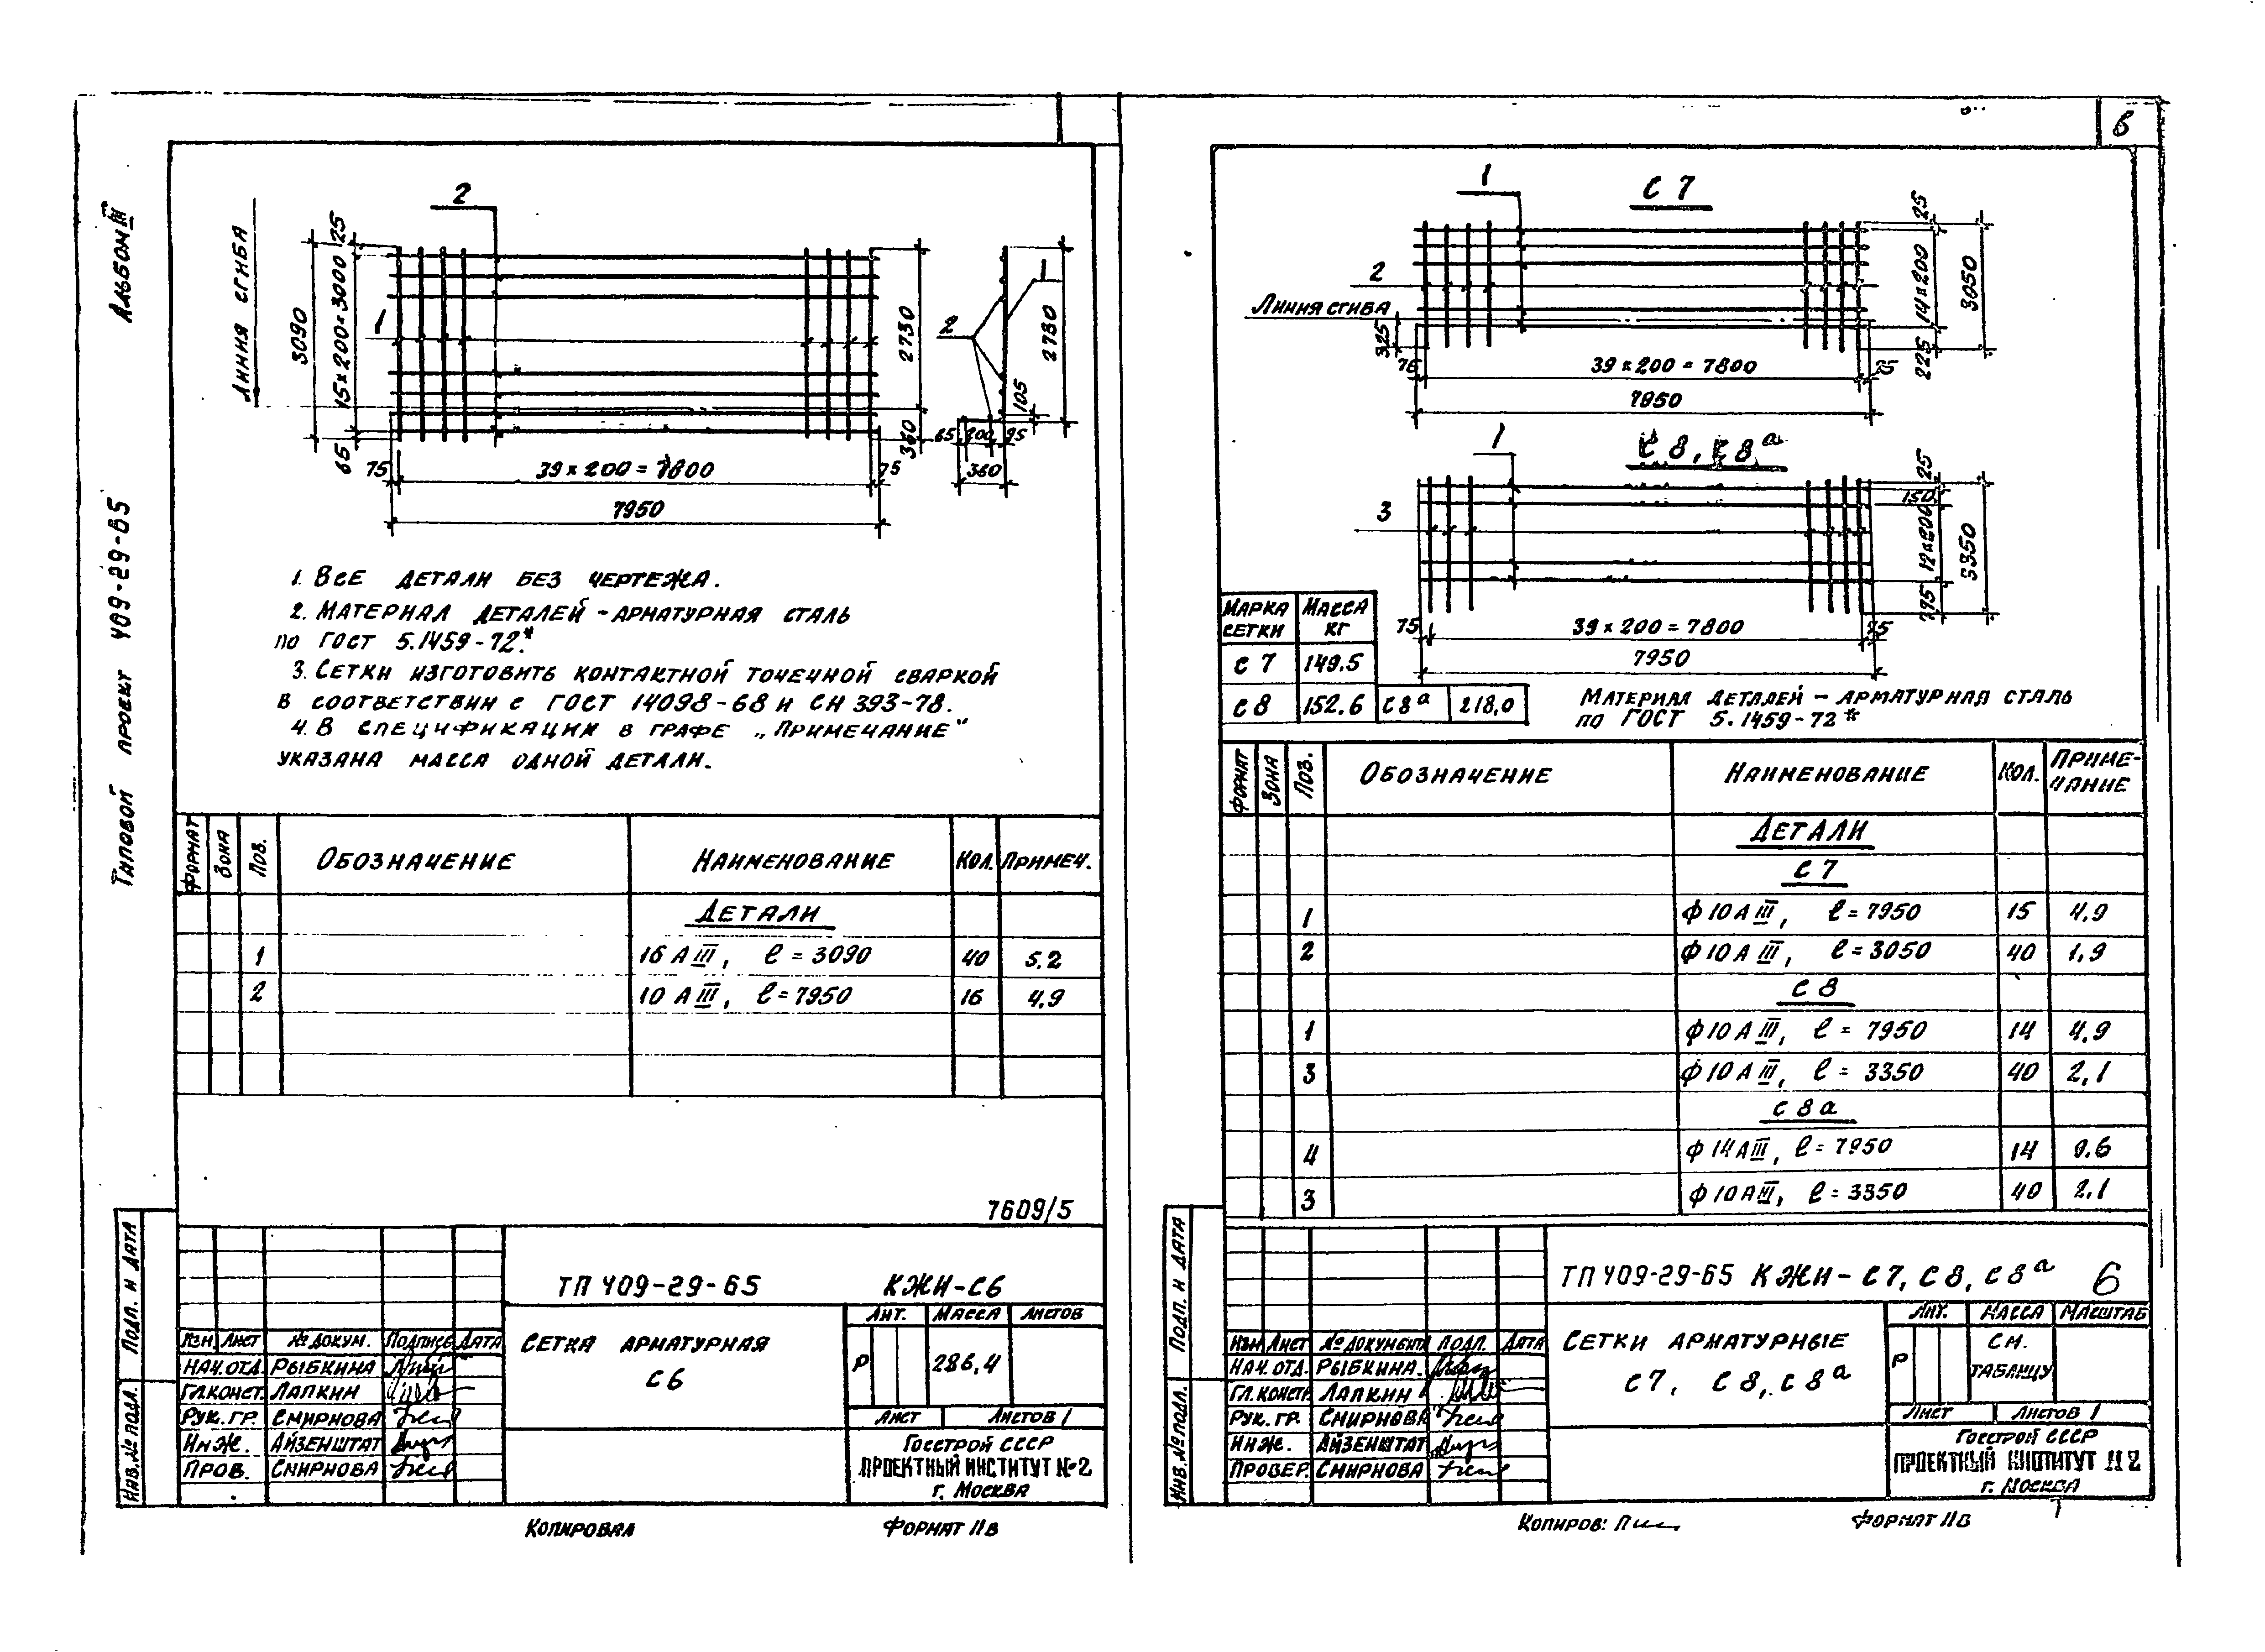 Альбом III
Типовой проект 409-29-65
2
Линия сгиба
3090
25
15×200=3000
65
1
75
39×200=7800
75
7950
2730
360
2
1
2780
105
65 200 95
360
1. Все детали без чертежа.
2. Материал деталей – арматурная сталь
по ГОСТ 5.1459-72*.
3. Сетки изготовить контактной точечной сваркой
в соответствии с ГОСТ 14098-68 и СН 393-78.
4. В спецификации в графе „Примечание"
указана масса одной детали.
Формат Зона Поз. Обозначение Наименование Кол. Примеч.
Детали
1 16 А III, ℓ = 3090 40 5.2
2 10 А III, ℓ = 7950 16 4.9
7609/5
ТП 409-29-65 КЖИ-С6
Сетка арматурная
С6
Лит. Масса Листов
Р 286,4
Лист Листов 1
Госстрой СССР
Проектный институт №2
г. Москва
Изм. Лист № докум. Подпись Дата
Нач. отд. Рыбкина
Гл. конст. Лапкин
Рук. гр. Смирнова
Инж. Айзенштат
Пров. Смирнова
Инв. № подл. Подп. и дата
Копировал Формат 11в
6
С 7
1
2
Линия сгиба
325
75
39×200=7800
75
7950
25
14×200
225
3050
С 8, С 8а
1
3
25
150
12×200
3350
75
39×200=7800
75
7950
Марка сетки Масса кг
С 7 149.5
С 8 152.6 С 8а 218,0
Материал деталей – арматурная сталь
по ГОСТ 5.1459-72*
Формат Зона Поз. Обозначение Наименование Кол. Примечание
Детали
С 7
1 ф 10 А III, ℓ = 7950 15 4.9
2 ф 10 А III, ℓ = 3050 40 1.9
С 8
1 ф 10 А III, ℓ = 7950 14 4.9
3 ф 10 А III, ℓ = 3350 40 2.1
С 8а
4 ф 14 А III, ℓ = 7950 14 9.6
3 ф 10 А III, ℓ = 3350 40 2.1
ТП 409-29-65 КЖИ-С7, С8, С8а 6
Сетки арматурные
С7, С8, С8а
Лит. Масса Масштаб
Р см. таблицу
Лист Листов 1
Госстрой СССР
Проектный институт №2
г. Москва
Изм. Лист № документа Подп. Дата
Нач. отд. Рыбкина.
Гл. констр. Лапкин
Рук. гр. Смирнова
Инж. Айзенштат
Провер. Смирнова
Инв. № подл. Подп. и дата
Копиров: Формат 11в